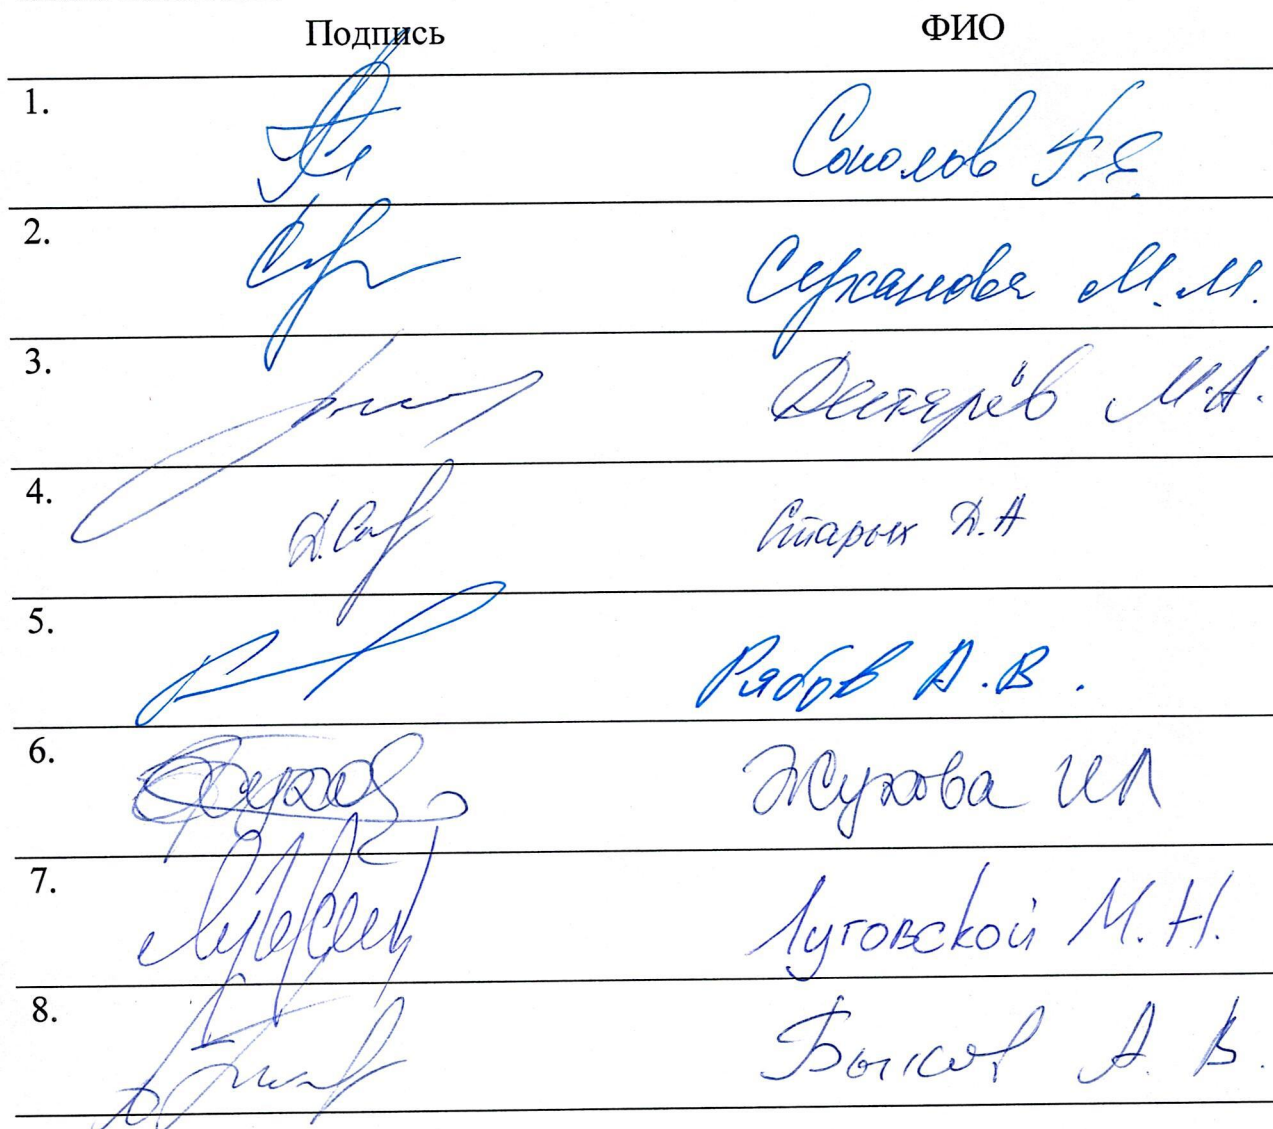 Подпись ФИО
1. Соколов Г.Я.
2. Суханова М.М.
3. Дегтярёв М.А.
4. Старых Д.А
5. Рябов А.В.
6. Жукова И Л
7. Луговской М.Н.
8. Быков А.В.